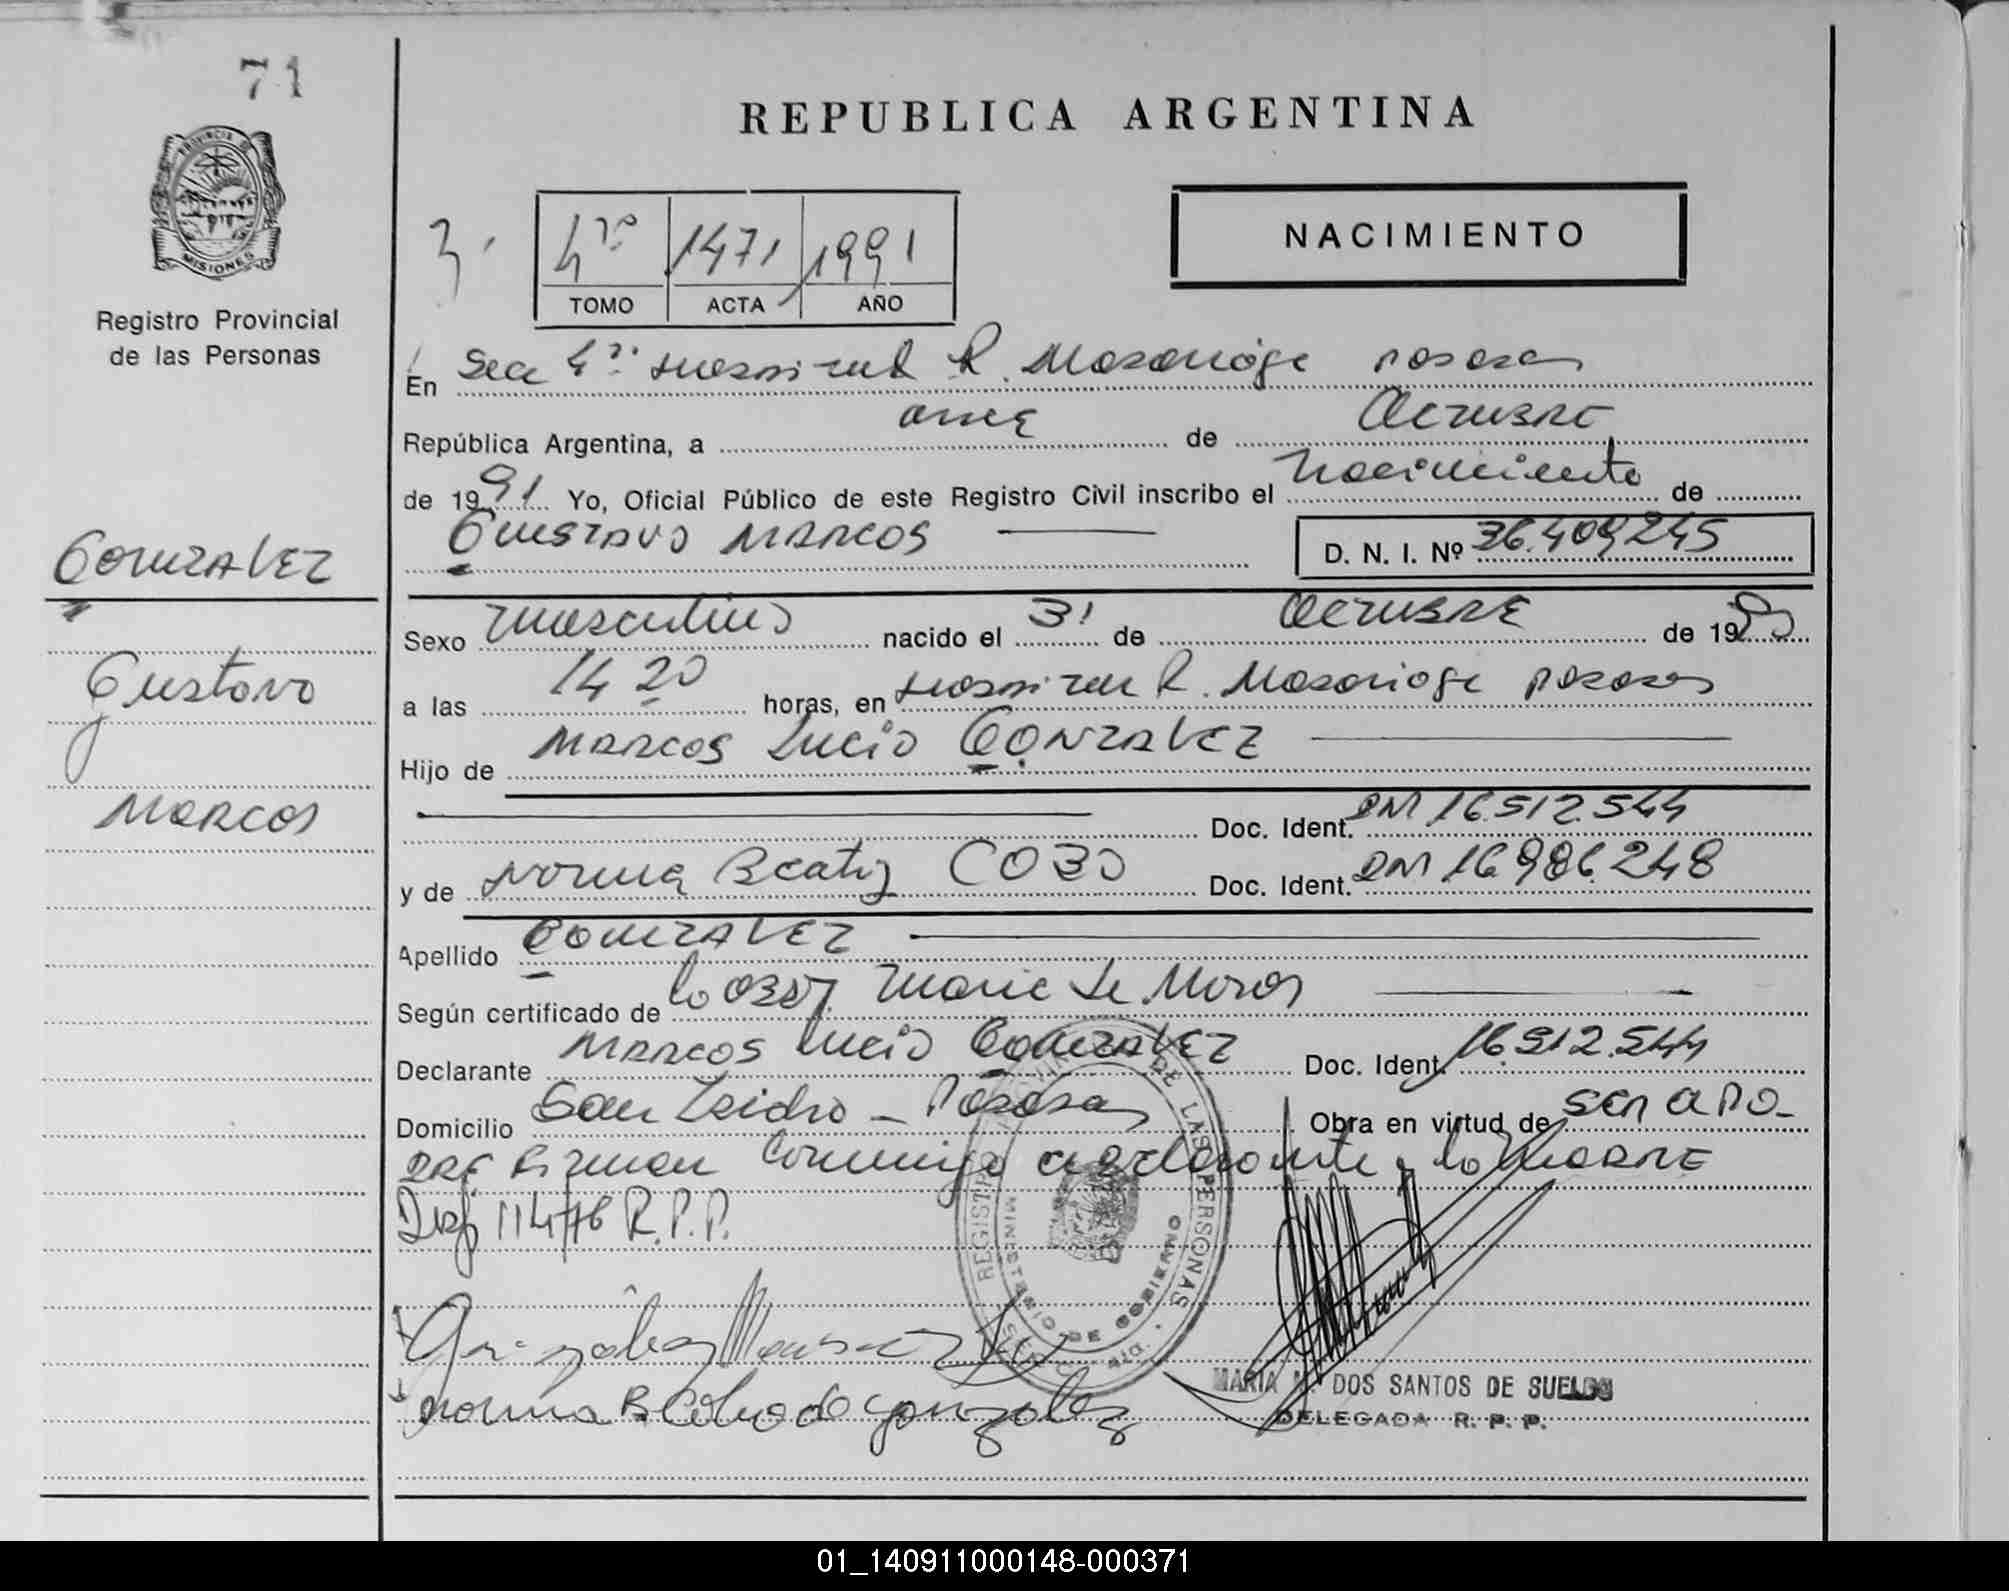 71
REPUBLICA ARGENTINA
PROVINCIA DE
MISIONES
Registro Provincial
de las Personas
NACIMIENTO
3.
4ro 1471 1991
TOMO ACTA AÑO
En Secc 4ta Hospital R. Madariaga Posadas
República Argentina, a once de Octubre
de 1991 Yo, Oficial Público de este Registro Civil inscribo el Nacimiento de
GUSTAVO MARCOS D. N. I. Nº 36.409.245
GONZALEZ
Gustavo
MARCOS
Sexo masculino nacido el 3 de OCTUBRE de 19
a las 14 20 horas, en Hospital R. Madariaga Posadas
Hijo de MARCOS Lucio GONZALEZ
Doc. Ident. DNI 16.512.544
y de Norma Beatriz COBO Doc. Ident. DNI 16.986.248
Apellido GONZALEZ
Según certificado de la Obst. Maria de
Declarante MARCOS Lucio GONZALEZ Doc. Ident. 16.512.544
Domicilio San Isidro - Posadas Obra en virtud de ser el PA-
DRE Firman conmigo el declarante y la MADRE
Disp 114/76 R.P.P.
REGISTRO PROVINCIAL DE LAS PERSONAS
MINISTERIO DE GOBIERNO
Gonzalez Marcos
Norma B Cobo de Gonzalez
MARIA DOS SANTOS DE SUELDO
DELEGADA R. P. P.
01_140911000148-000371